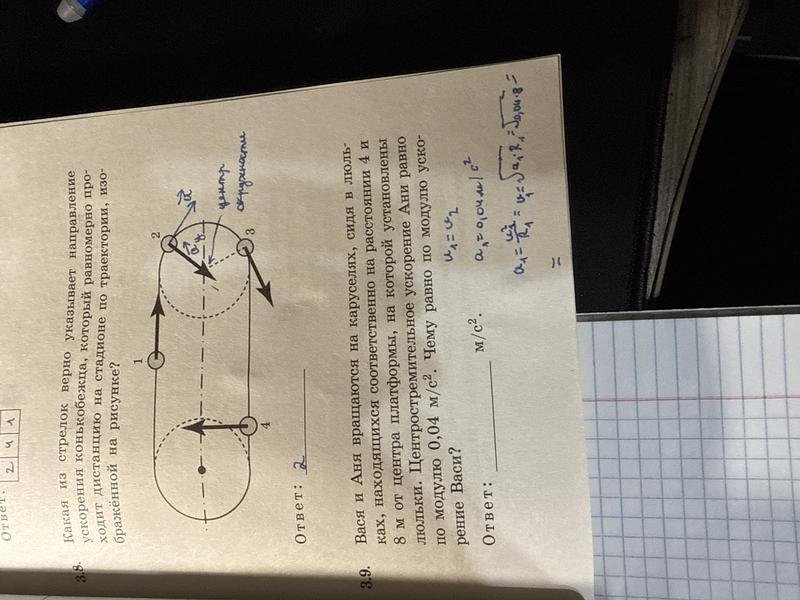 Ответ: 2 4 1
3.8. Какая из стрелок верно указывает направление
ускорения конькобежца, который равномерно про-
ходит дистанцию на стадионе по траектории, изо-
бражённой на рисунке?
1
2
3
4
a⃗ц
центр
окружности
Ответ: 2
3.9. Вася и Аня вращаются на каруселях, сидя в люль-
ках, находящихся соответственно на расстоянии 4 и
8 м от центра платформы, на которой установлены
люльки. Центростремительное ускорение Ани равно
по модулю 0,04 м/с². Чему равно по модулю уско-
рение Васи?
Ответ: м/с².
a₁=0,04 м/с²